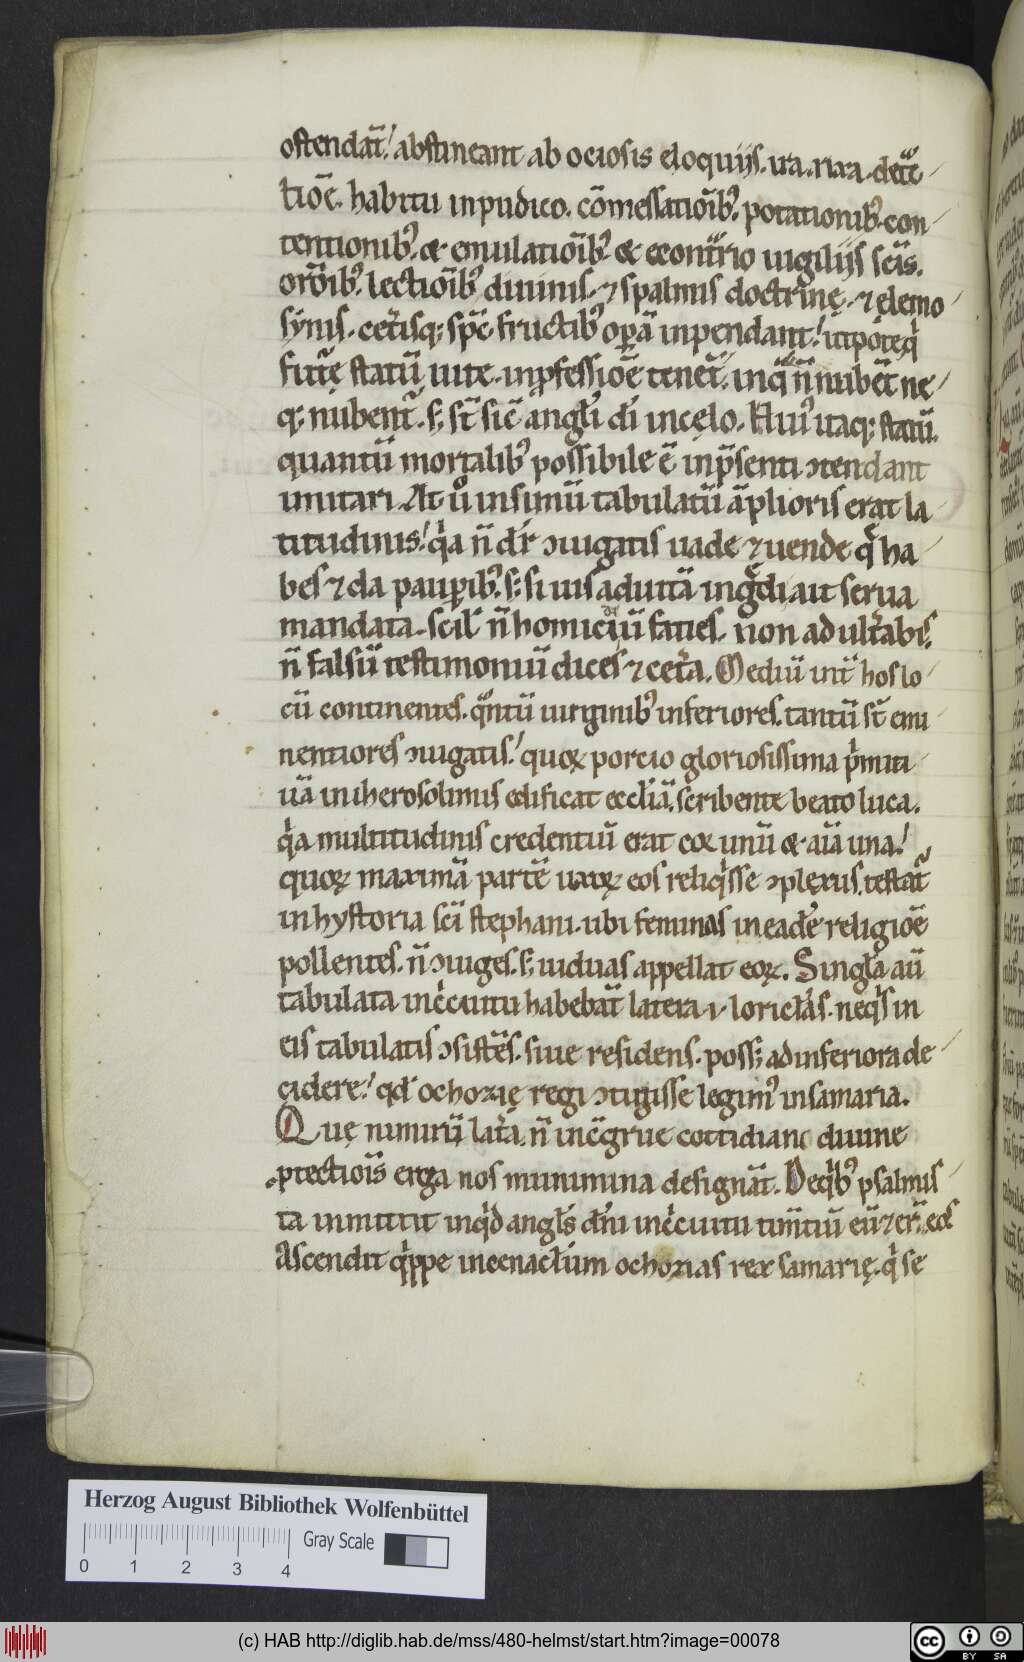 ostendat̄. abstineant ab ociosis eloquiis. ira. rixa. detc̄
tiōe. habitu inpudico. cōmessatiōibꝰ. potationibꝰ. con
tentionibꝰ. & emulatiōibꝰ & econtrio uigiliis scīs.
orōibꝰ. lectiōibꝰ diuinis. ⁊ spalmis doctrinę. ⁊ ęlemo
sẏnis. cet̄isq; sp̄c fructibꝰ oꝑā inpendant. utpote q
fut̄ę statū uite. inꝓfessiōe tenet̄. in qͣ n̄ nubēt ne
q; nubent̄. s; st̄ sic̄ angłi dī in cęlo. Huiꝰ itaq; statū.
quantū mortalibꝰ possibile ē inp̄senti ↄtendant
imitari. At ů insimū tabulatū āplioris erat la
titudinis. qͥa n̄ dr̄ ↄiugatis uade ⁊ uende q̄ ha
bes ⁊ da pauꝑibꝰ. s; si uis ad uitā inḡdi aut serua
mandata. scił n̄ homicidiū faties. non adult̄abis.
n̄ falsū testimoniū dices ⁊ cet̄a. Mediū int̄ hos lo
cū continentes. qͣntū uirginibꝰ inferiores. tantū st̄ emi
nentiores ↄiugatis. quoꝝ porcio gloriosissima pͥmiti
uā in iherosolimis edificat ecclīā. scribente beato luca.
qͥa multitudinis credentiū erat cor unū & aīa una.
quoꝝ maximā partē uxoꝝ eos reliqͥsse ↄplexus. testat̄
in hystoria scī stephani. ubi feminas in eadē religiōe
pollentes. n̄ ↄiuges. s; uiduas appellat eoꝝ. Singła aū
tabulata inc̄cuitu habebāt latera ⁊ loricłas. neqͥs in
eis tabulatis ↄsistēs. siue residens. poss; ad inferiora de
cidere. qd̄ ochozię regi ↄtigisse legimꝰ in samaria.
Quę nimirū lat̄a. n̄ incḡrue cottidianę diuine
ꝓtectiōis erga nos munimina designāt. De qͥbꝰ psalmis
ta inmittit inqͥd angls dn̄i inc̄cuitu tim̄tiū eū ⁊ er̄. eos
Ascendit qͥppe in cenacłum ochozias rex samarię. qͥ se
Herzog August Bibliothek Wolfenbüttel
0 1 2 3 4
Gray Scale
(c) HAB http://diglib.hab.de/mss/480-helmst/start.htm?image=00078
cc BY SA